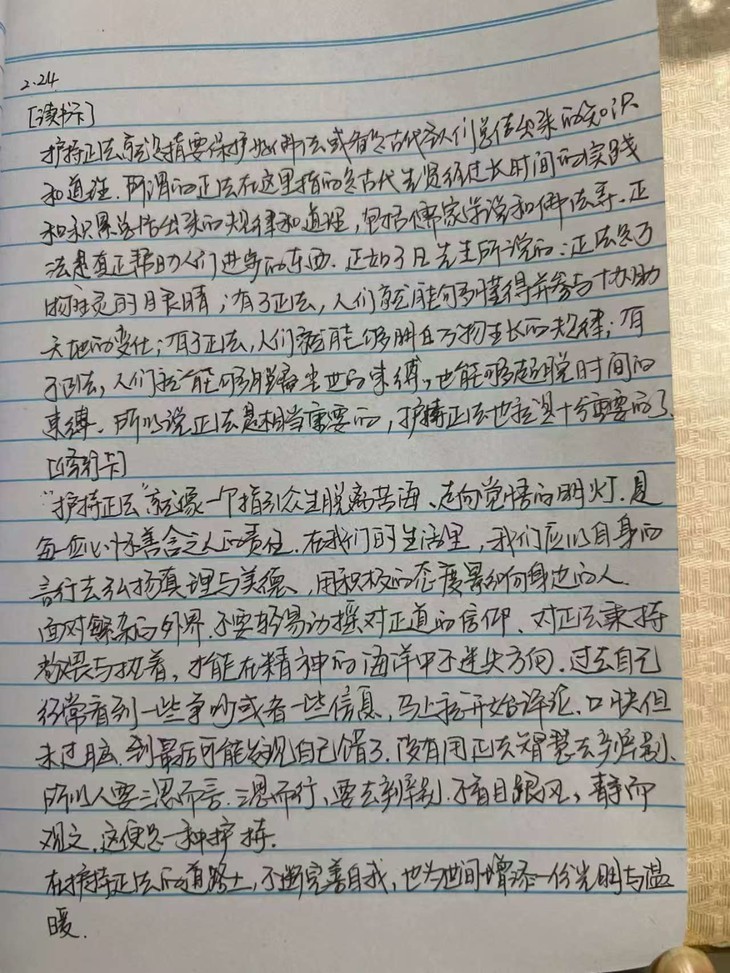 2.24
[读书卡]
护持正法就是指要保护好佛法或者是古代圣人们总结出来的知识
和道理. 所谓的正法在这里指的是古代先贤经过长时间的实践
和积累总结出来的规律和道理, 包括儒家学说和佛法等. 正
法是真正帮助人们进步的东西. 正如了凡先生所说的: 正法是万
物生灵的眼睛; 有了正法, 人们就能够懂得并参与协助
天地的变化; 有了正法, 人们就能够明白万物生长的规律; 有
了正法, 人们就能够脱离尘世的束缚, 也能够超脱时间的
束缚. 所以说正法是相当重要的, 护持正法也就是十分重要的了.
[修行卡]
“护持正法”就像一个指引众生脱离苦海、走向觉悟的明灯. 是
每位心怀善念之人的责任. 在我们的生活里, 我们应以自身的
言行去弘扬真理与美德、用积极的态度影响身边的人.
面对繁杂的外界. 不要轻易动摇对正道的信仰、对正法秉持
敬畏与执着, 才能在精神的海洋中不迷失方向. 过去自己
经常看到一些争吵或者一些信息, 马上就开始评论. 口快但
未过脑. 到最后可能发现自己错了. 没有用正法智慧去辨别.
所以人要三思而言. 三思而行, 要去辨别. 不盲目跟风, 静而
观之. 这便是一种护持.
在护持正法的道路上, 不断完善自我, 也为世间增添一份光明与温
暖.